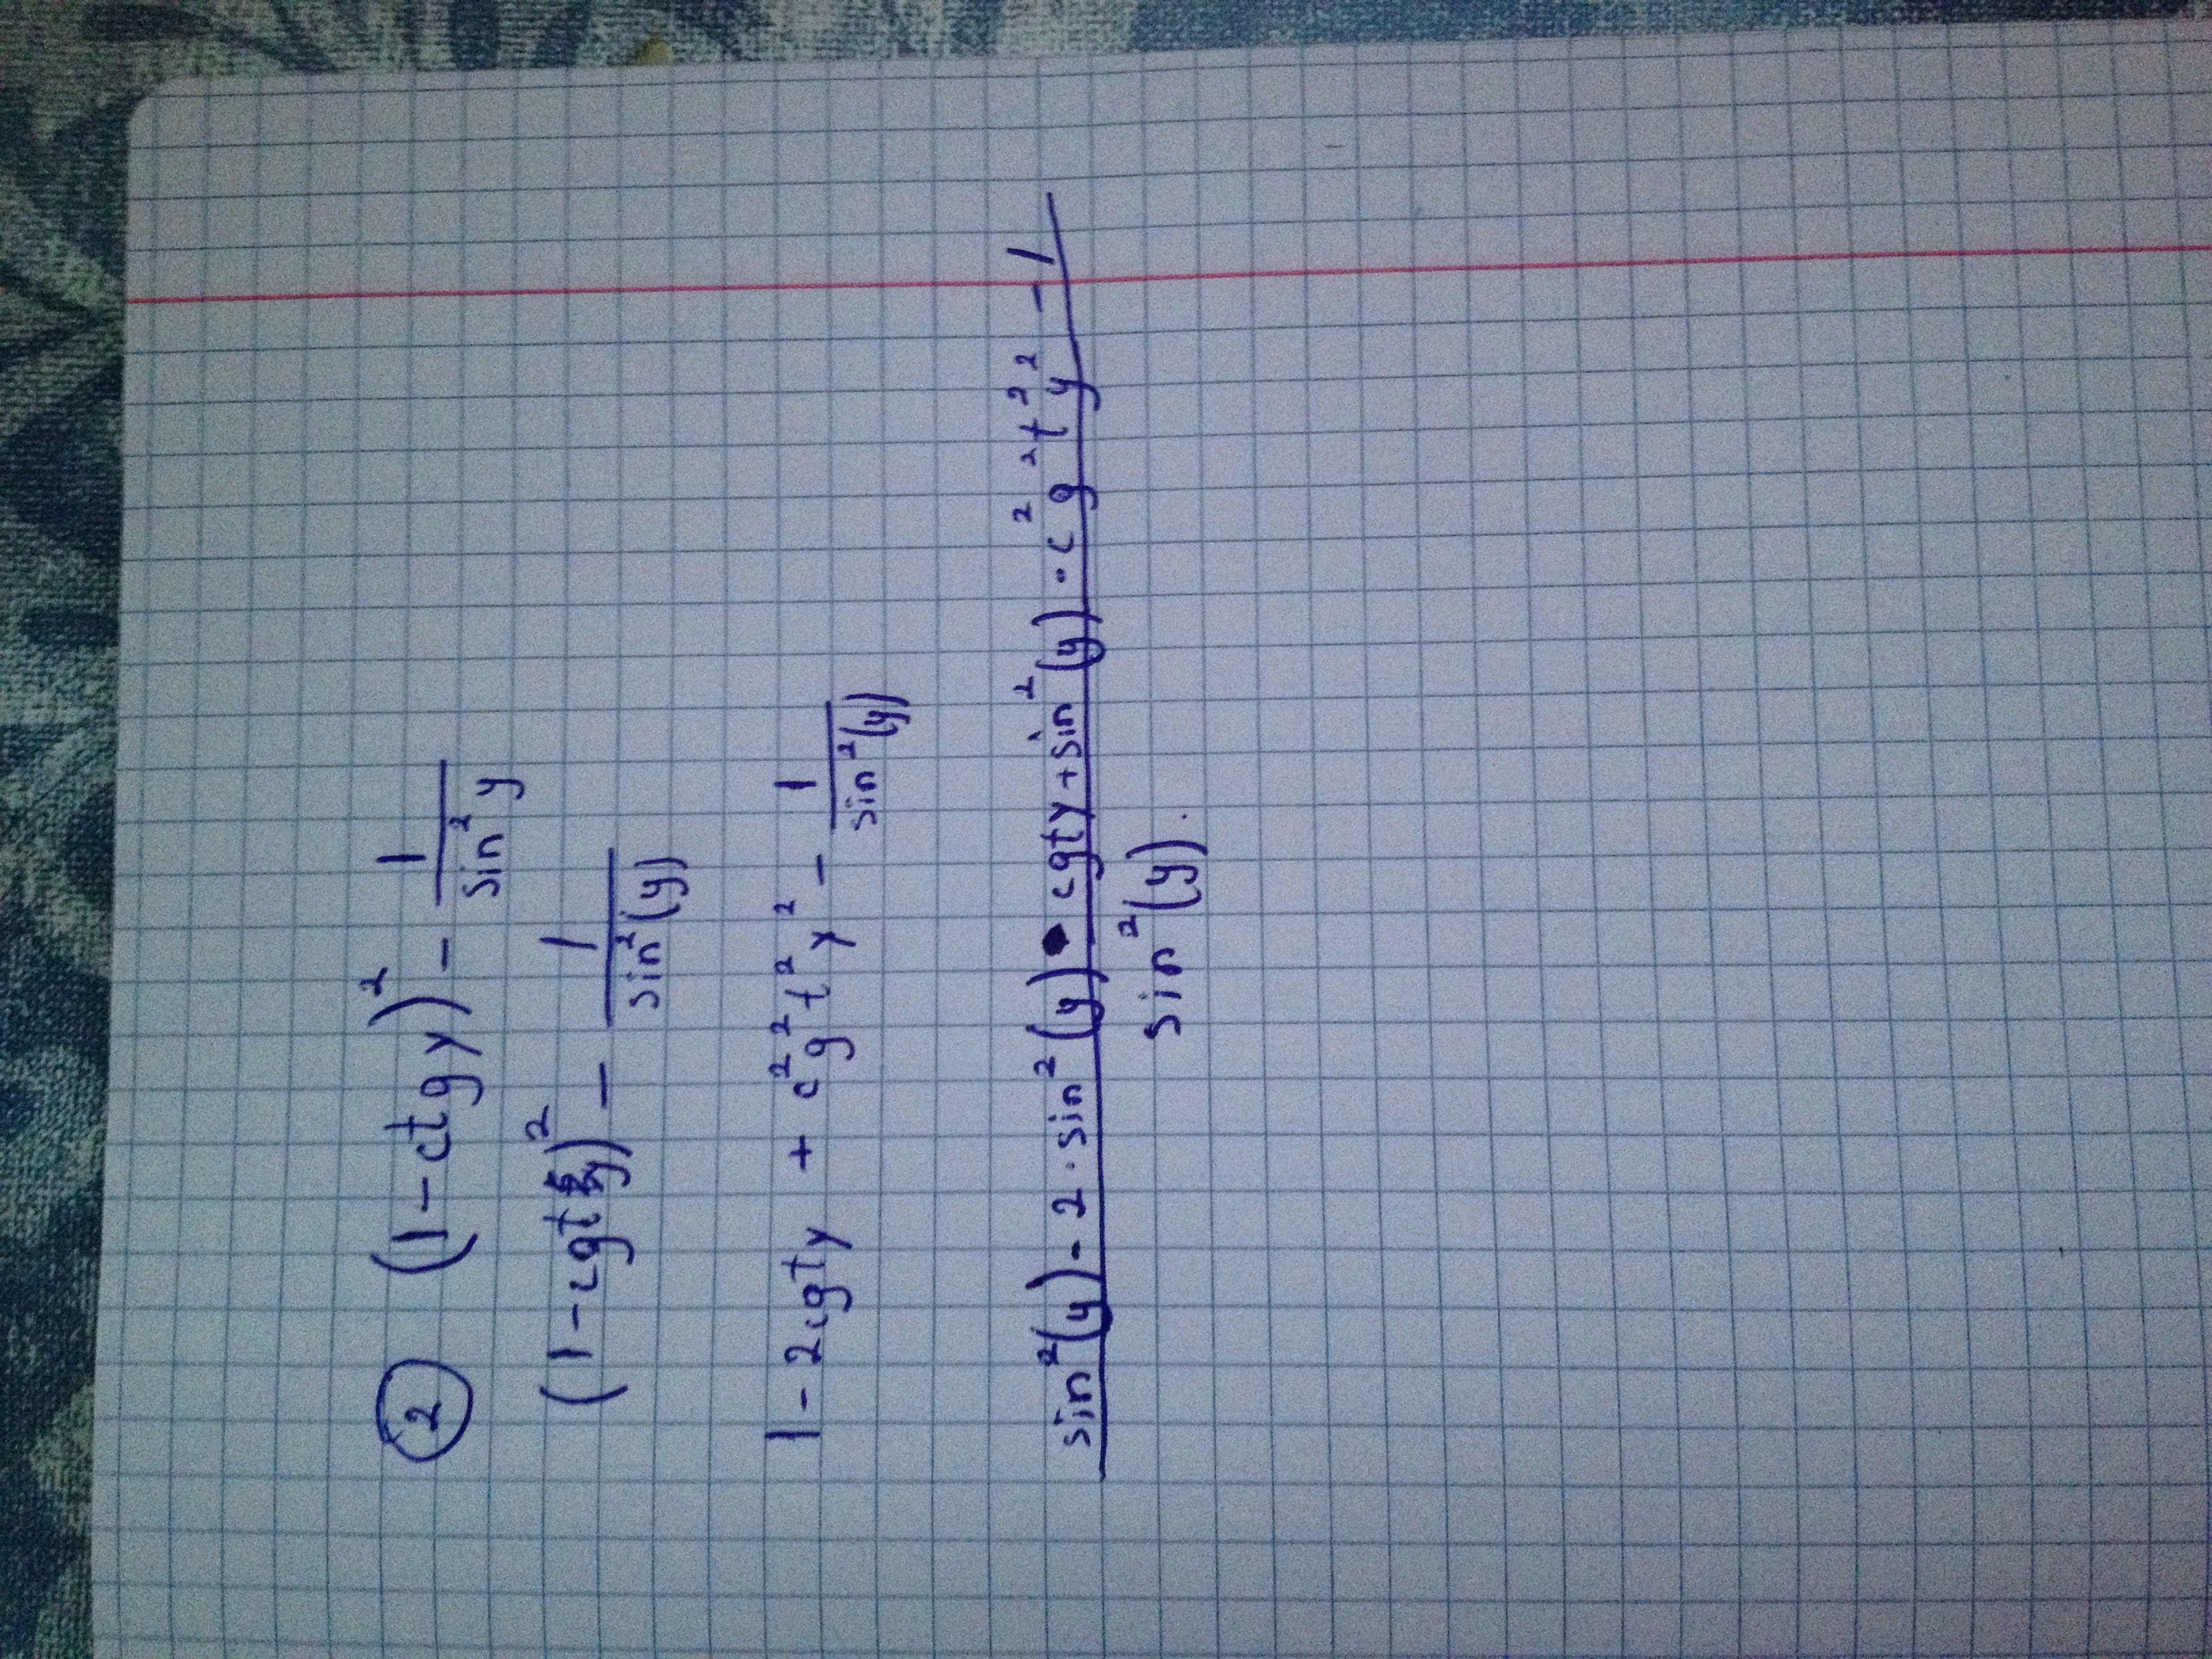 ② (1-ctgy)² - 1/sin²y
(1-cgty)² - 1/sin²(y)
1-2cgty + c²g²t²y² - 1/sin²(y)
sin²(y)-2·sin²(y)·cgty+sin²(y)·c²g²t²y²-1
sin²(y).